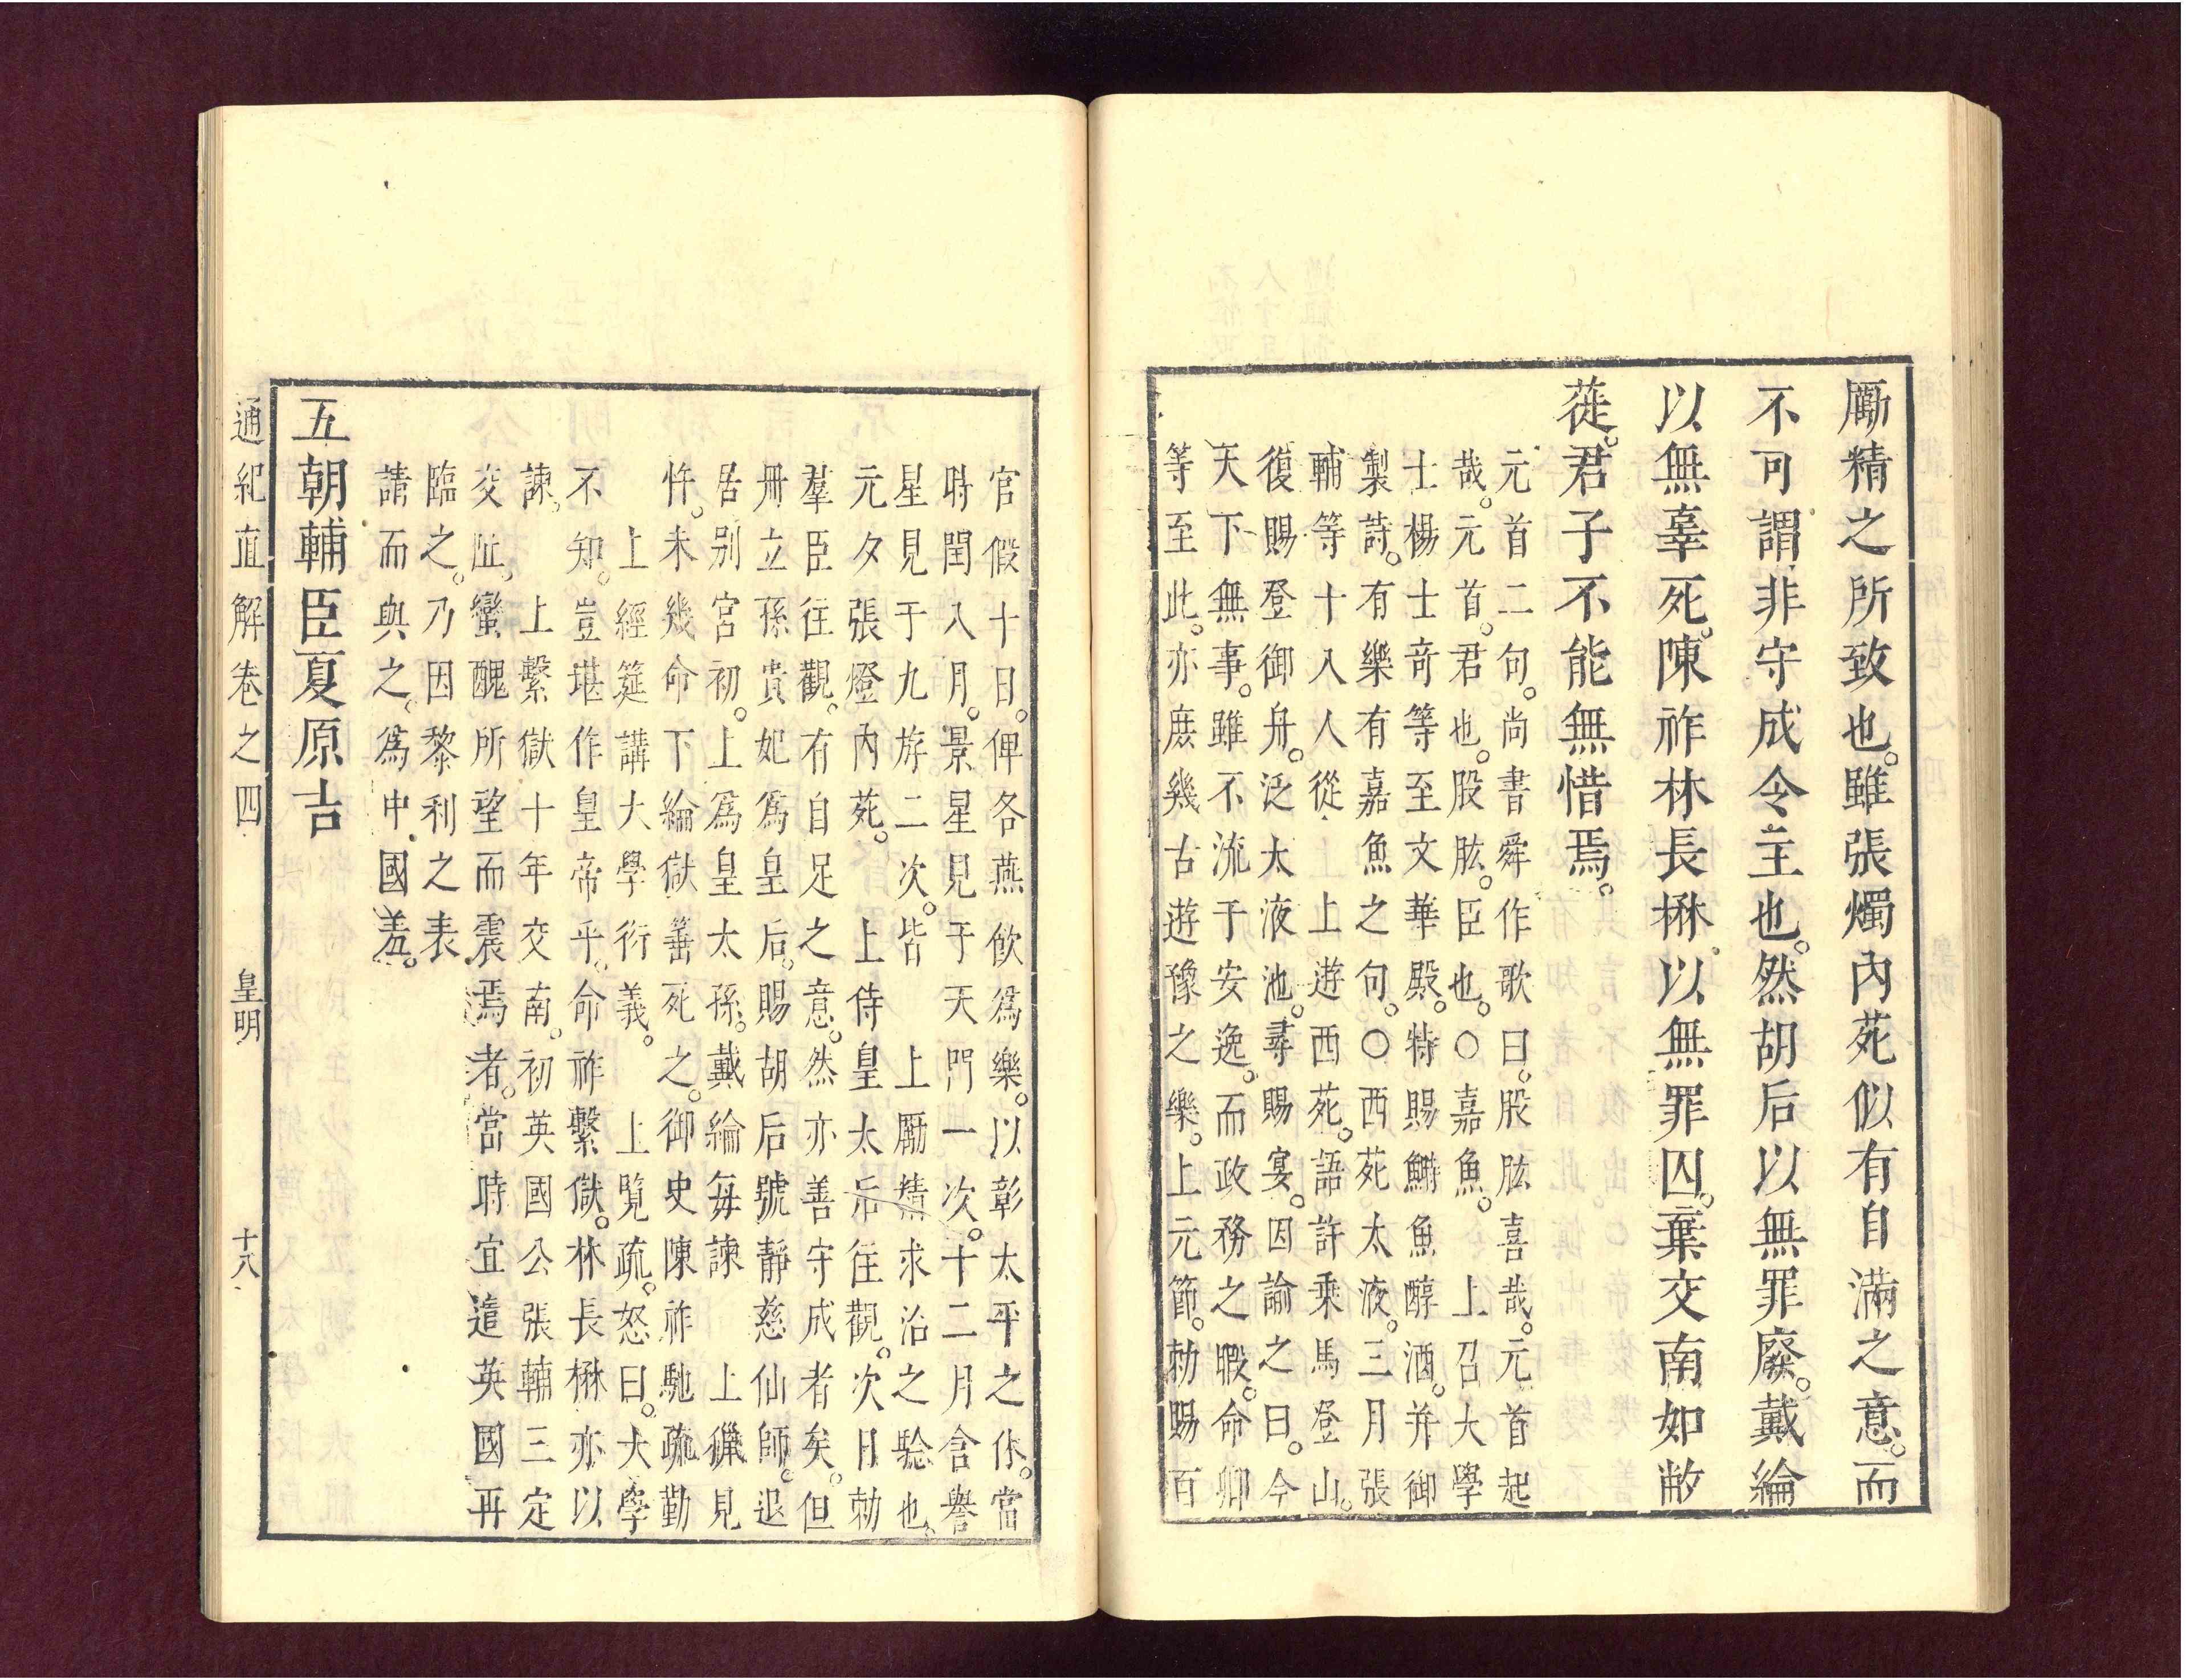 厲精之所致也。雖張燭內苑似有自滿之意。而
不可謂非守成令主也。然胡后以無罪廢。戴綸
以無辜死。陳祚林長楙以無罪囚。棄交南如敝
蓰。君子不能無惜焉。
元首二句。尚書舜作歌曰。股肱喜哉。元首起
哉。元首。君也。股肱。臣也。○嘉魚。上召大學
士楊士奇等至文華殿。特賜鰣魚醇酒。并御
製詩。有樂有嘉魚之句。○西苑太液。三月張
輔等十八人從上遊西苑。語許乘馬登山。
復賜登御舟。泛太液池。尋賜宴。因諭之曰。今
天下無事。雖不流于安逸。而政務之暇。命卿
等至此。亦庶幾古遊豫之樂。上元節。勅賜百
官假十日。俾各燕飲爲樂。以彰太平之休。當
時閏八月。景星見于天門一次。十二月含譽
星見于九斿二次。皆上厲精求治之驗也。
元夕張燈內苑。上侍皇太后往觀。次日勅
羣臣往觀。有自足之意。然亦善守成者矣。但
冊立孫貴妃爲皇后。賜胡后號靜慈仙師。退
居别宮初。上爲皇太孫。戴綸每諫上獵見
忤。未幾命下綸獄箠死之。御史陳祚馳疏勤
上經筵講大學衍義。上覽疏。怒曰。大學
不知。豈堪作皇帝乎。命祚繫獄。林長楙亦以
諫。上繫獄十年交南。初英國公張輔三定
交阯。蠻醜所望而震焉者。當時宜遣英國再
臨之。乃因黎利之表
請而與之。爲中國羞。
五朝輔臣夏原吉
通紀直解卷之四 皇明 十八